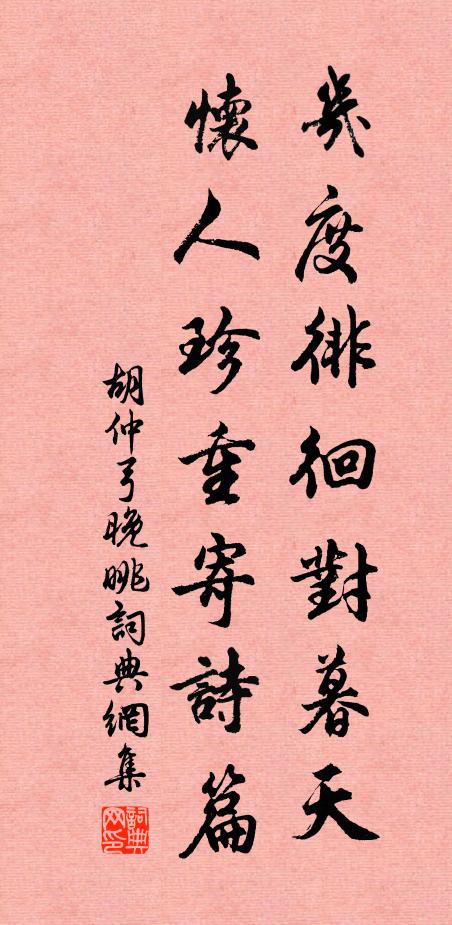 幾度徘徊對暮天
懷人珍重寄詩篇
胡仲弓晚眺詞典網集
詞典网印